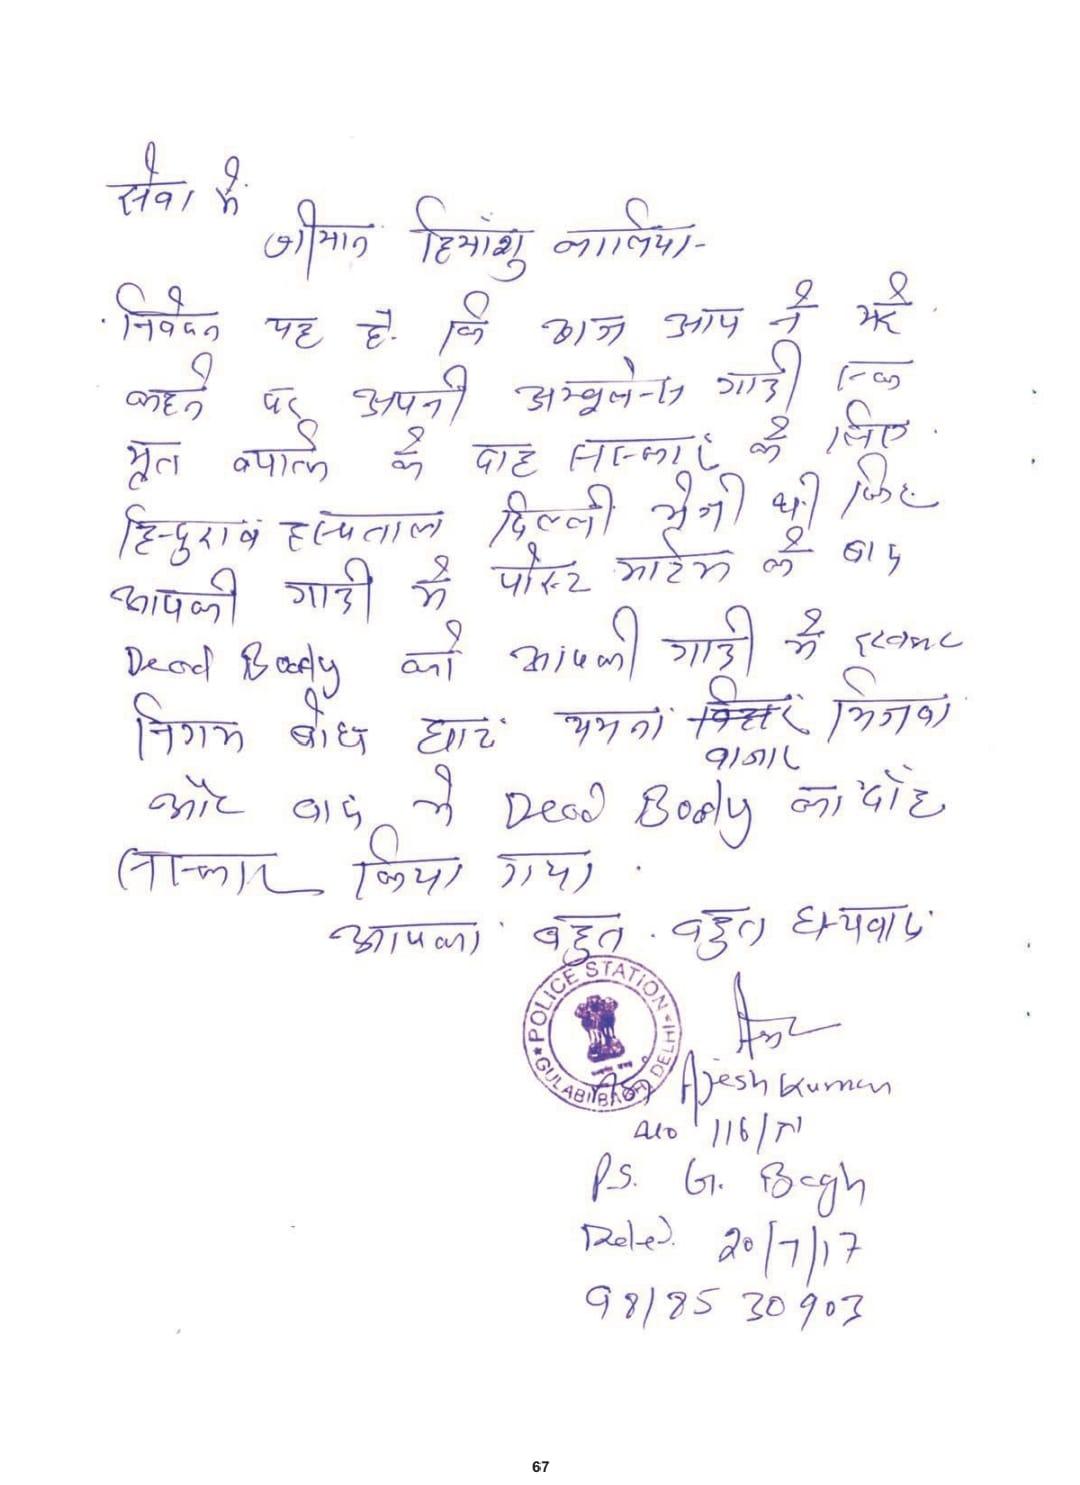 सेवा में
श्रीमान हिमांशु कालिया-
निवेदन यह है. कि आज आप ने मेरे
कहने पर अपनी अम्बूलेन्स गाडी एक
मृत व्यक्ति के दाह सस्कार के लिए
हिन्दुराव हस्पताल दिल्ली भेजी थी फिर
आपकी गाडी में पोस्ट मार्टम के बाद
Dead Body को आपकी गाडी में रखकर
निगम बोध घाट यमना बाजार भिजवा
और बाद में Dead Body का दाह
सस्कार किया गया
आपका बहुत. बहुत धन्यवाद
POLICE STATION
GULABI BAGH DELHI
Ajesh Kumar
No 116/N
P.S. G. Bagh
Dated. 20/7/17
98185 30903
67